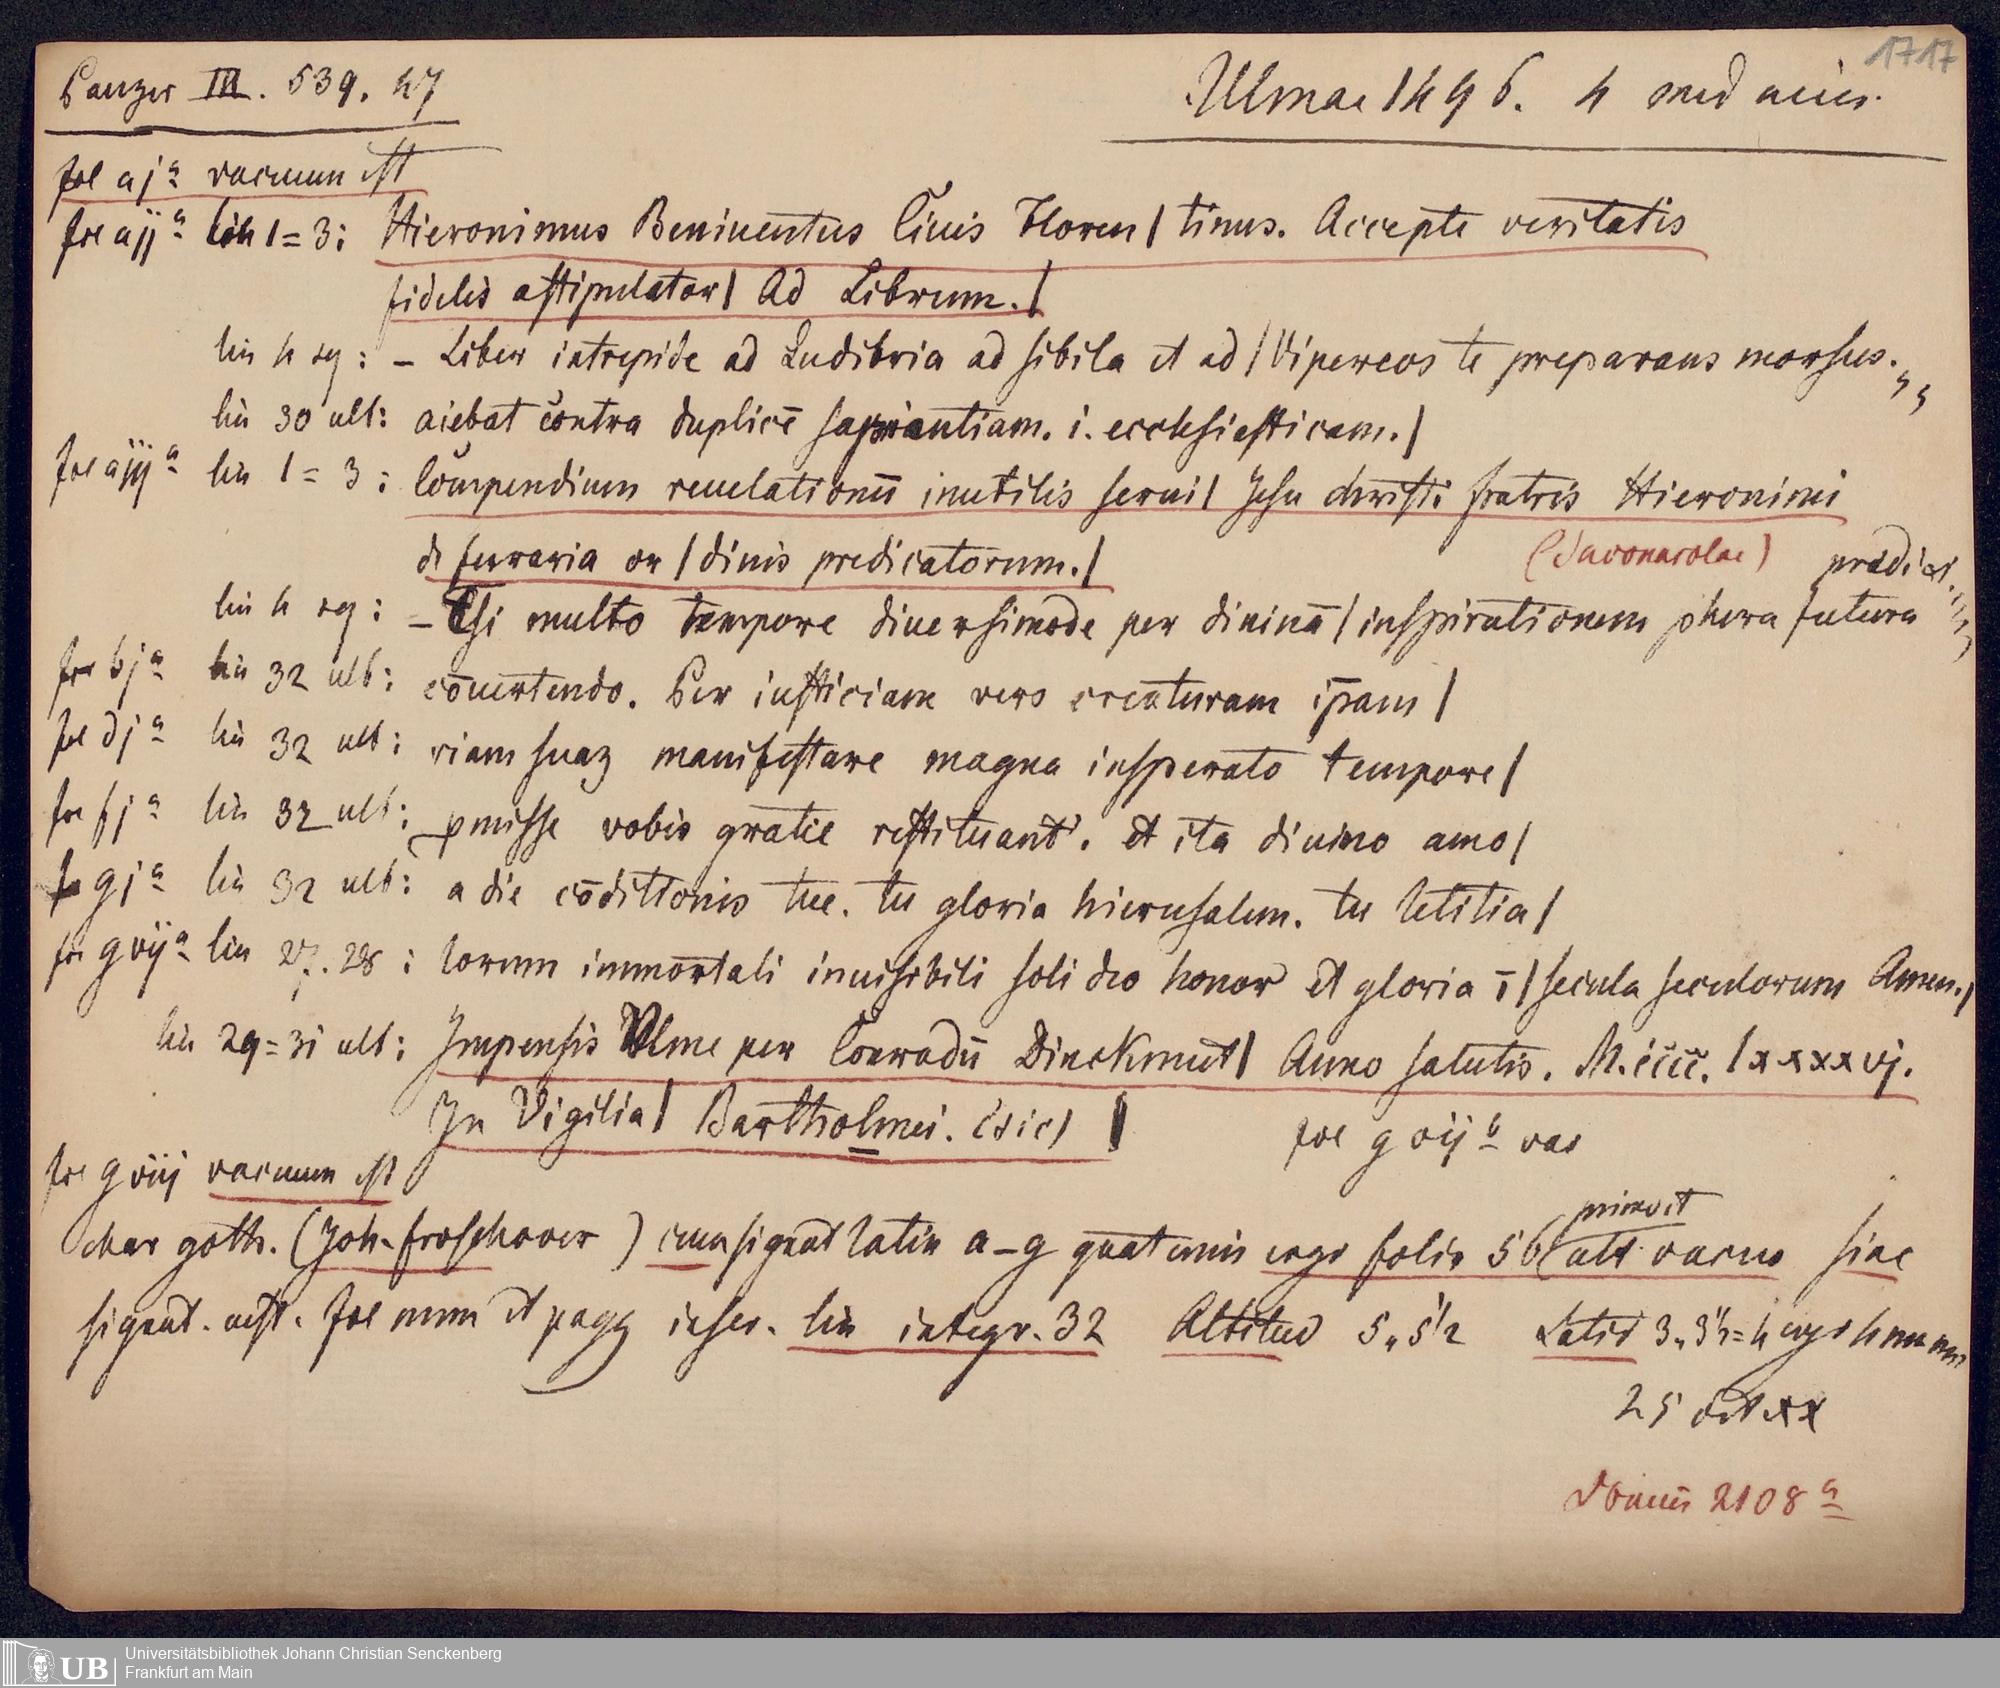 1717
Panzer III. 539. 47
Ulmae 1496. 4 med
fol aj a vacuum est
fol aij a lin 1=3: Hieronimus Beniuentus Ciuis Floren | tinus. Accepte veritatis
fidelis astipulator | Ad Librum. |
lin 4 sq: – Liber intrepide ad Ludibria ad sibila et ad | Vipereos te preparans morsus.
lin 30 ult: aiebat contra duplicē sapiantiam. i. ecclesiasticam. |
fol aiij a lin 1=3: Compendium reuelationū inutilis serui | Jesu christi fratris Hieronimi
de ferraria or | dinis predicatorum. | (Savonarolae)
lin 4 sq: – Etsi multo tempore diuersimode per diuinā | inspirationem plura futura
fol bj a lin 32 ult: cōuertendo. Per iusticiam vero creaturam ip̄am |
fol dj a lin 32 ult: riam suaz manifestare magna insperato tempore |
fol fj a lin 32 ult: pmisse vobis gratie restituant'. et ita diuino amo |
gj a lin 32 ult: a die cōdittonis tue. tu gloria hierusalem. tu letitia |
fol gvij a lin 27. 28: lorum immortali inuisibili soli deo honor et gloria ī | secula seculorum Amen. |
lin 29=31 ult: Impensis Vlme per Conradū Dinckmut | Anno salutis. M.cccc. lxxxxvj.
In Vigilia | Bartholmei. (sic) | fol g vij b vac
fol g viij vacuum est
Char goth. (Joh. froschover) cum signat latin a–g quaternis ergo foliis 56 (primo et
ult. vacuo sine
signat. cust. fol num et pagg inscr. lin integr. 32 Altitud 5„ 5½ Latid 3„ 3½ = 4 ergo 4
25 Oct xx
2108 a
Universitätsbibliothek Johann Christian Senckenberg
UB Frankfurt am Main